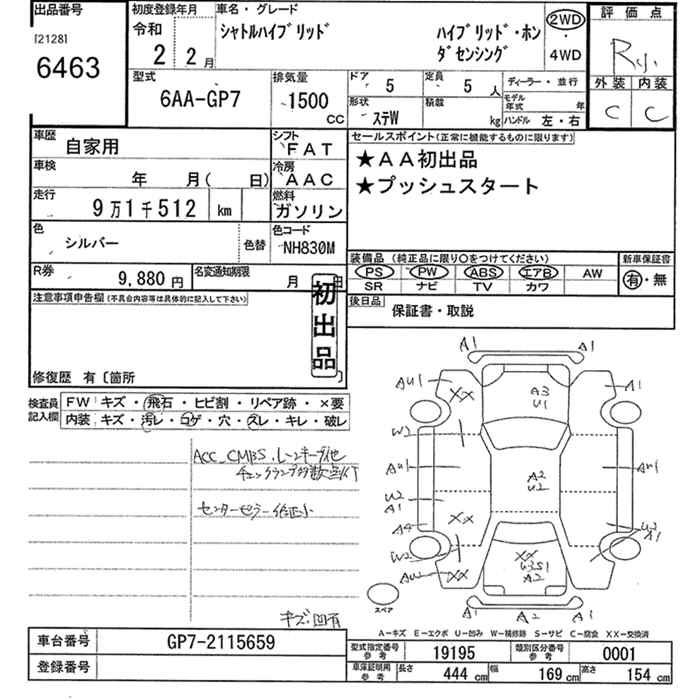 出品番号
[2128]
6463
初度登録年月
令和
2 2月
車名・グレード
シャトルハイブリッド
ハイブリッド・ホン
ダセンシング
2WD
・
4WD
評価点
R小
外装 内装
C C
型式
6AA-GP7
排気量
1500
cc
ドア
5
定員
5 人
形状
ステW
積載
kg
ディーラー・並行
モデル年式 年
ハンドル 左・右
車歴
自家用
シフト
FAT
車検
年 月( 日)
冷房
AAC
走行
9万1千512 km
燃料
ガソリン
色
シルバー
色替
色コード
NH830M
R券
9,880円
名変通知期限
月 日
セールスポイント(正常に機能するものに限ります)
★AA初出品
★プッシュスタート
装備品 (純正品に限り○をつけてください)
PS PW ABS エアB AW
SR ナビ TV カワ
新車保証書
有・無
後日品
保証書・取説
注意事項申告欄(不具合内容等は具体的に記入して下さい)
初出品
修復歴 有〔箇所
検査員
記入欄
FW キズ・飛石・ヒビ割・リペア跡・×要
内装 キズ・汚レ・コゲ・穴・スレ・キレ・破レ
ACC、CMBS、レーンキープ他
チェックランプ多数点灯
センターピラー修正小
キズ凹有
A1
A1
A1
AU1
XX
A3
U1
A1
W2
AU1
A2
U2
AU1
U2
A1
XX
A4
W2
XX
U3S1
A2
U2
A1
AU
XX
スペア
A1
A2
A1
A-キズ E-エクボ U-凹み W-補修跡 S-サビ C-腐食 XX-交換済
車台番号
GP7-2115659
登録番号
型式指定番号
参考
19195
類別区分番号
参考
0001
車庫証明用
参考
長さ 444 cm 幅 169 cm 高さ 154 cm